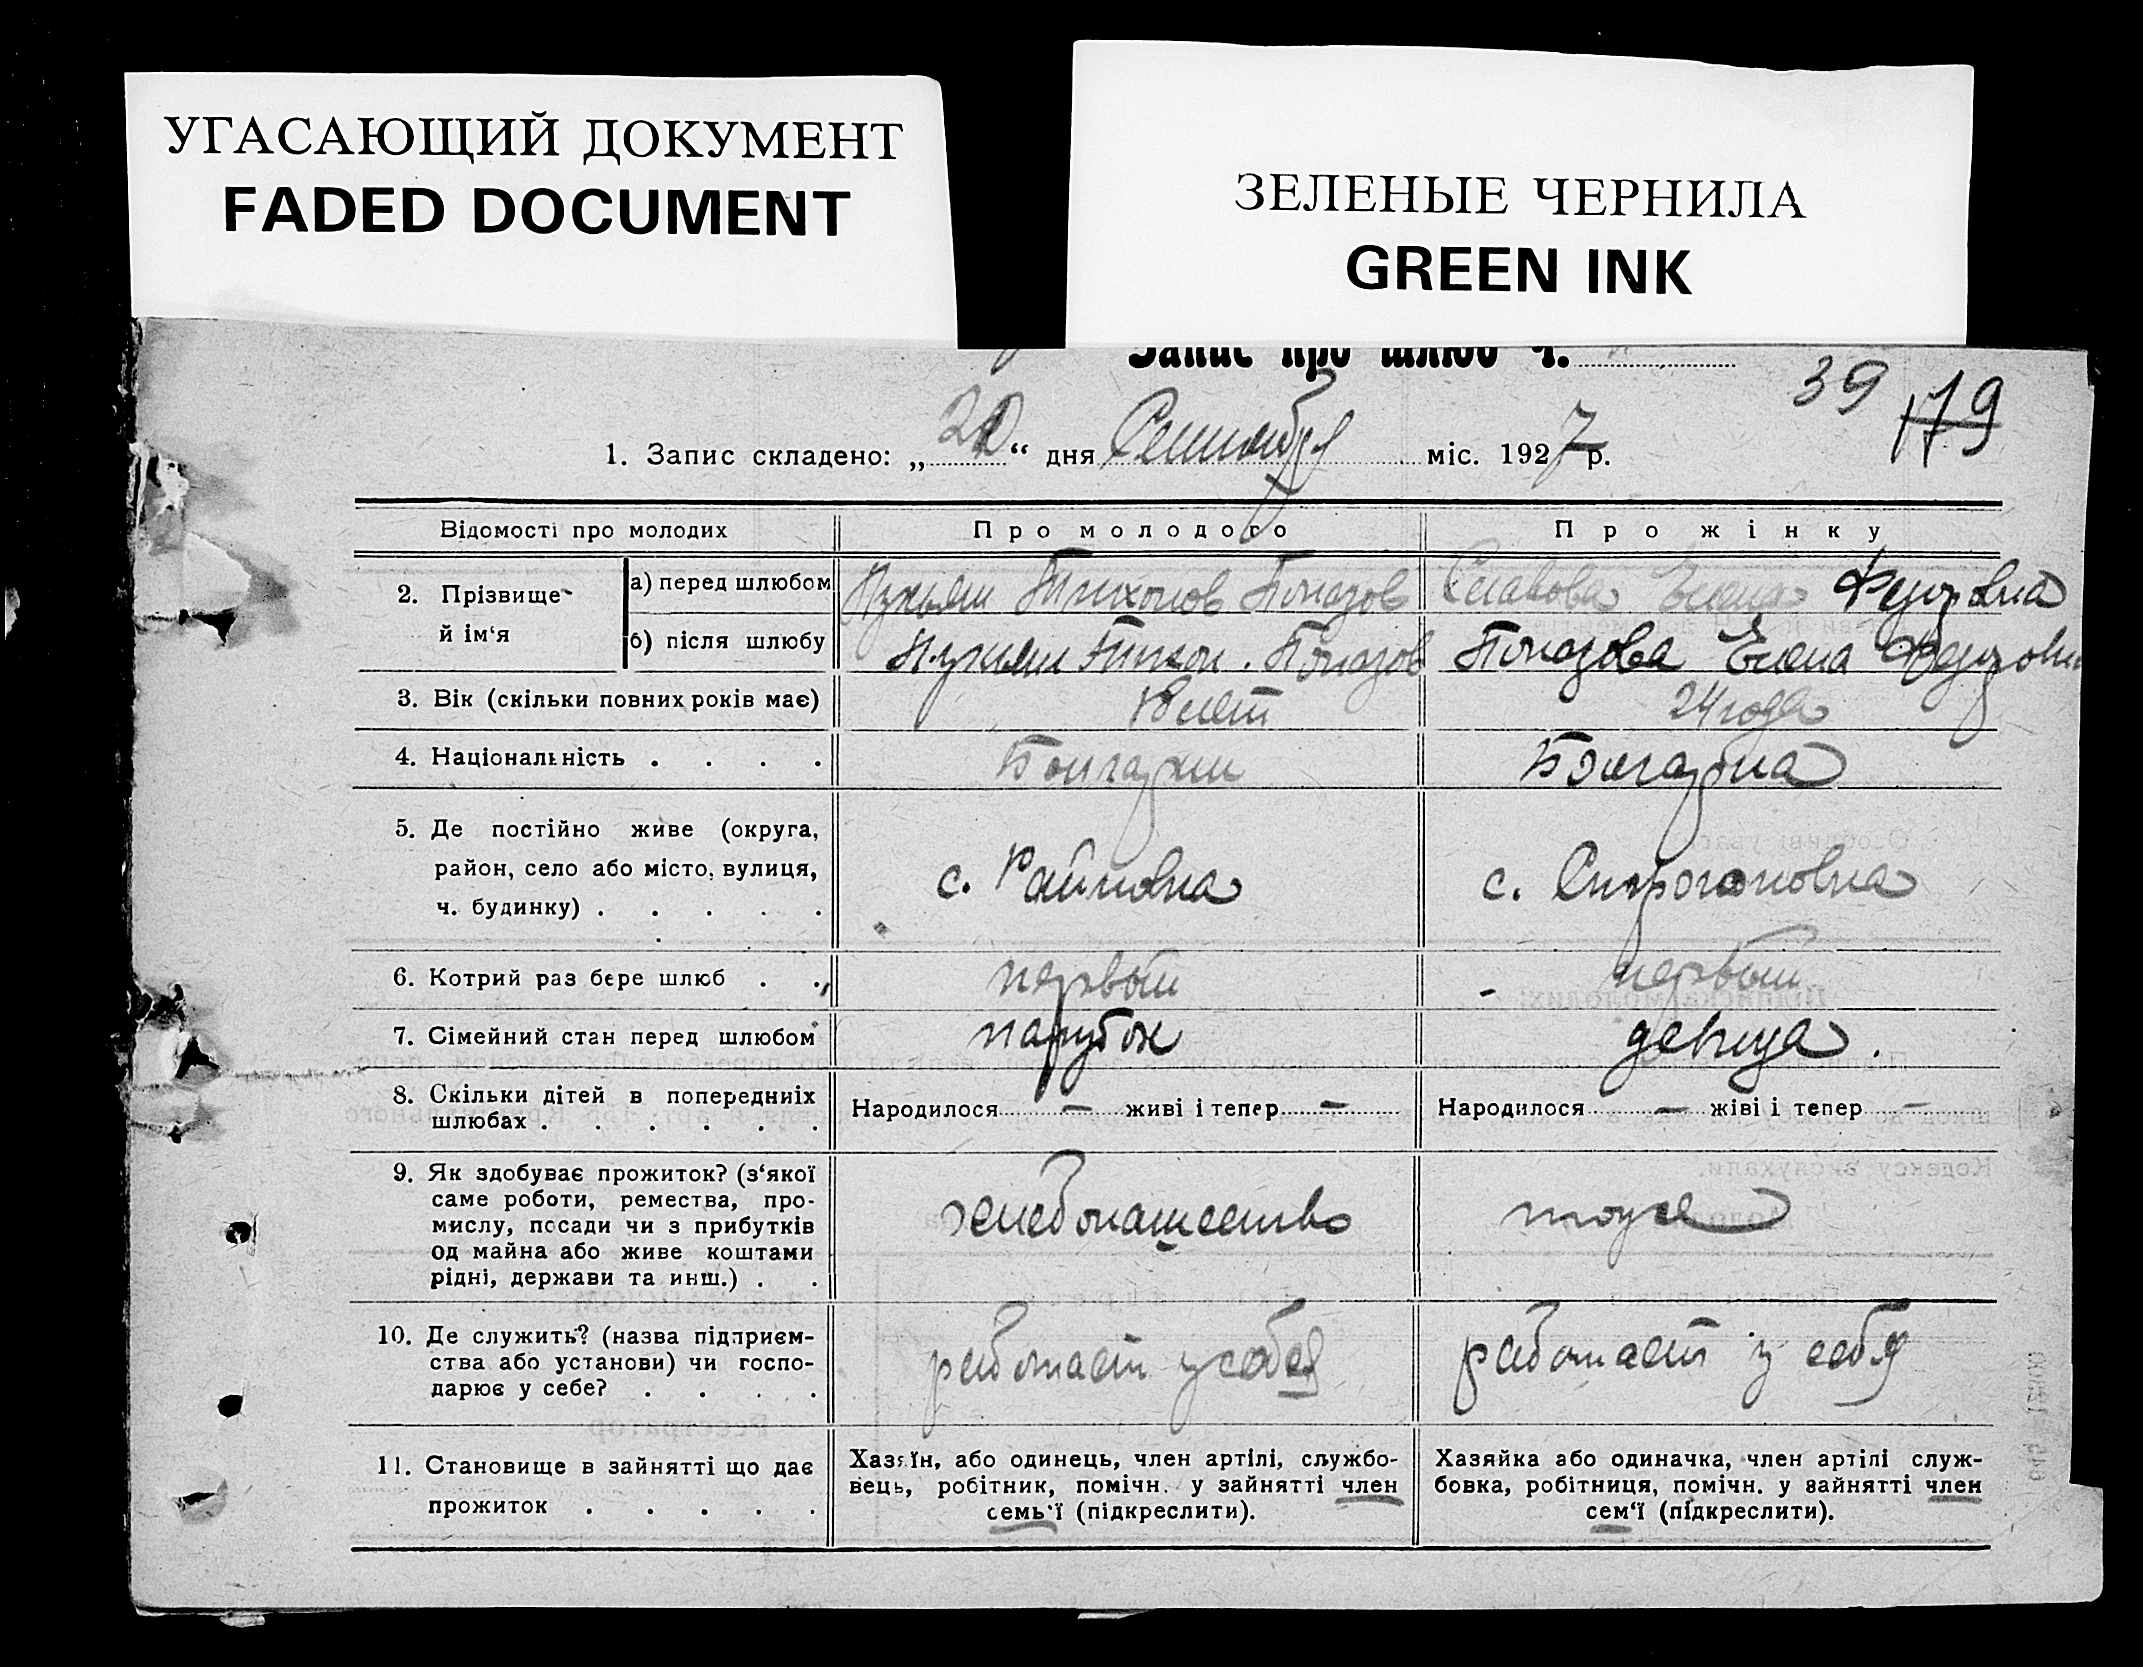 УГАСАЮЩИЙ ДОКУМЕНТ
FADED DOCUMENT
ЗЕЛЕНЫЕ ЧЕРНИЛА
GREEN INK
Запис про шлюб ч.
39 179
1. Запис складено: „20“ дня Сентября міс. 1927 р.
Відомості про молодих Про молодого Про жінку
2. Прізвище й ім‘я
а) перед шлюбом Тихонов Славова Елена
б) після шлюбу Тихон. Елена
3. Вік (скільки повних років має) 18 лет 24 года
4. Національність . . . . Болгарин Болгарка
5. Де постійно живе (округа,
район, село або місто, вулиця,
ч. будинку) . . . . .
с. Райновка с.
6. Котрий раз бере шлюб . . первый первый
7. Сімейний стан перед шлюбом парубок девица.
8. Скільки дітей в попередниіх
шлюбах . . . . . .
Народилося — живі і тепер — Народилося — жіві і тепер —
9. Як здобуває прожиток? (з‘якої
саме роботи, ремества, про-
мислу, посади чи з прибутків
од майна або живе коштами
рідні, держави та инш.) . .
хлебопашество тоуже
10. Де служить? (назва підприєм-
ства або установи) чи госпо-
дарює у себе? . . . .
работает у себя работает у себя
11. Становище в зайнятті що дає
прожиток . . . . .
Хазяїн, або одинець, член артілі, службо-
вець, робітник, помічн. у зайнятті член
семь‘ї (підкреслити).
Хазяйка або одиначка, член артілі служ-
бовка, робітниця, помічн. у зайнятті член
сем‘ї (підкреслити).